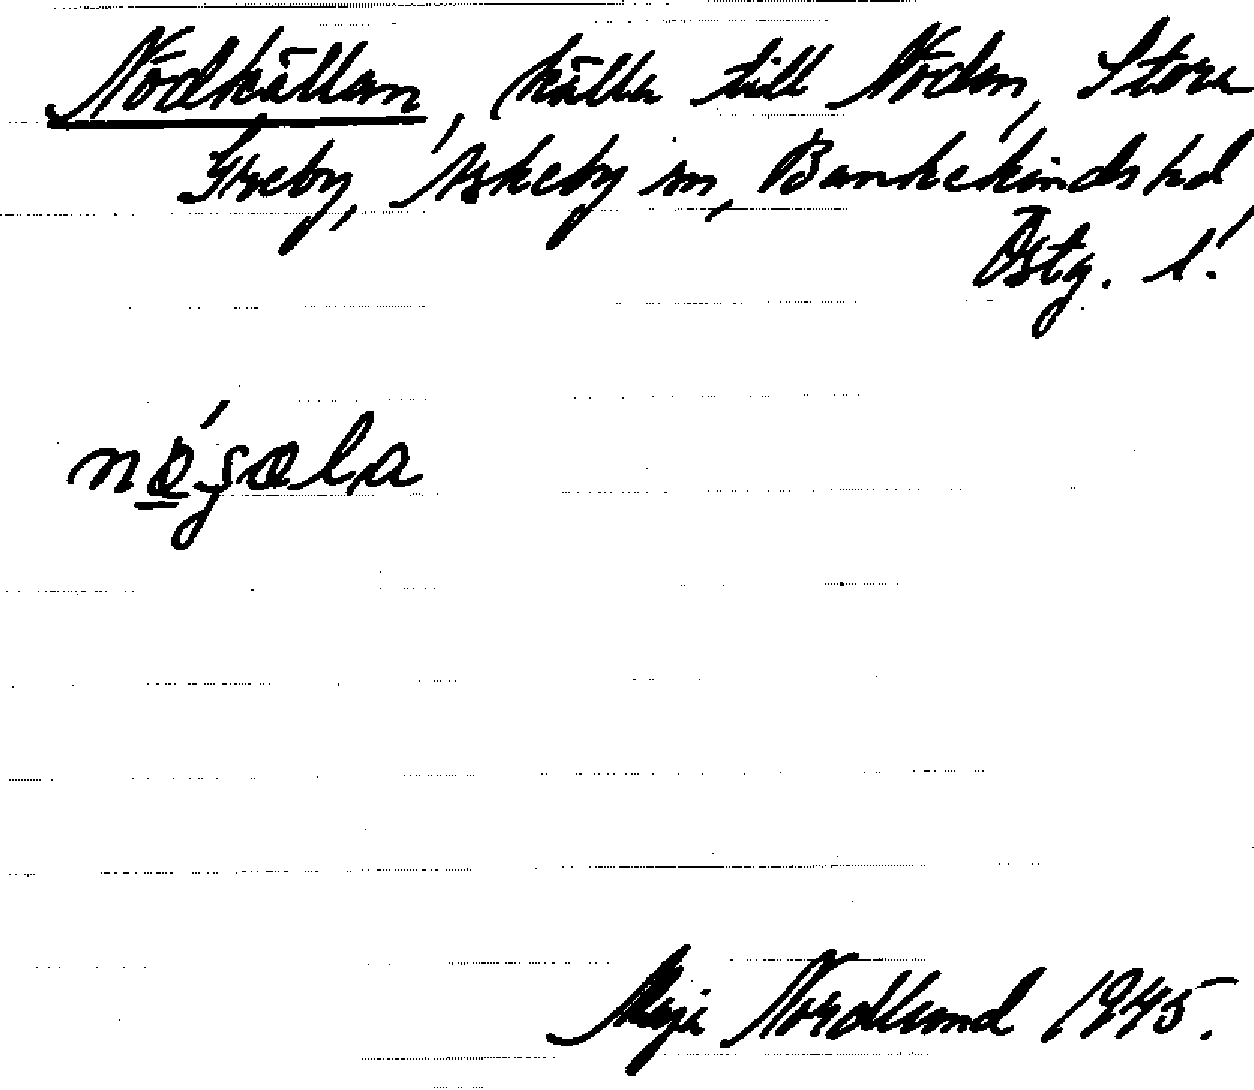 Nödkällan, källa till Nöden, Stora
Greby, Askeby sn, Bankekinds hd,
Östg. l.
Maja Nordlund 1945.